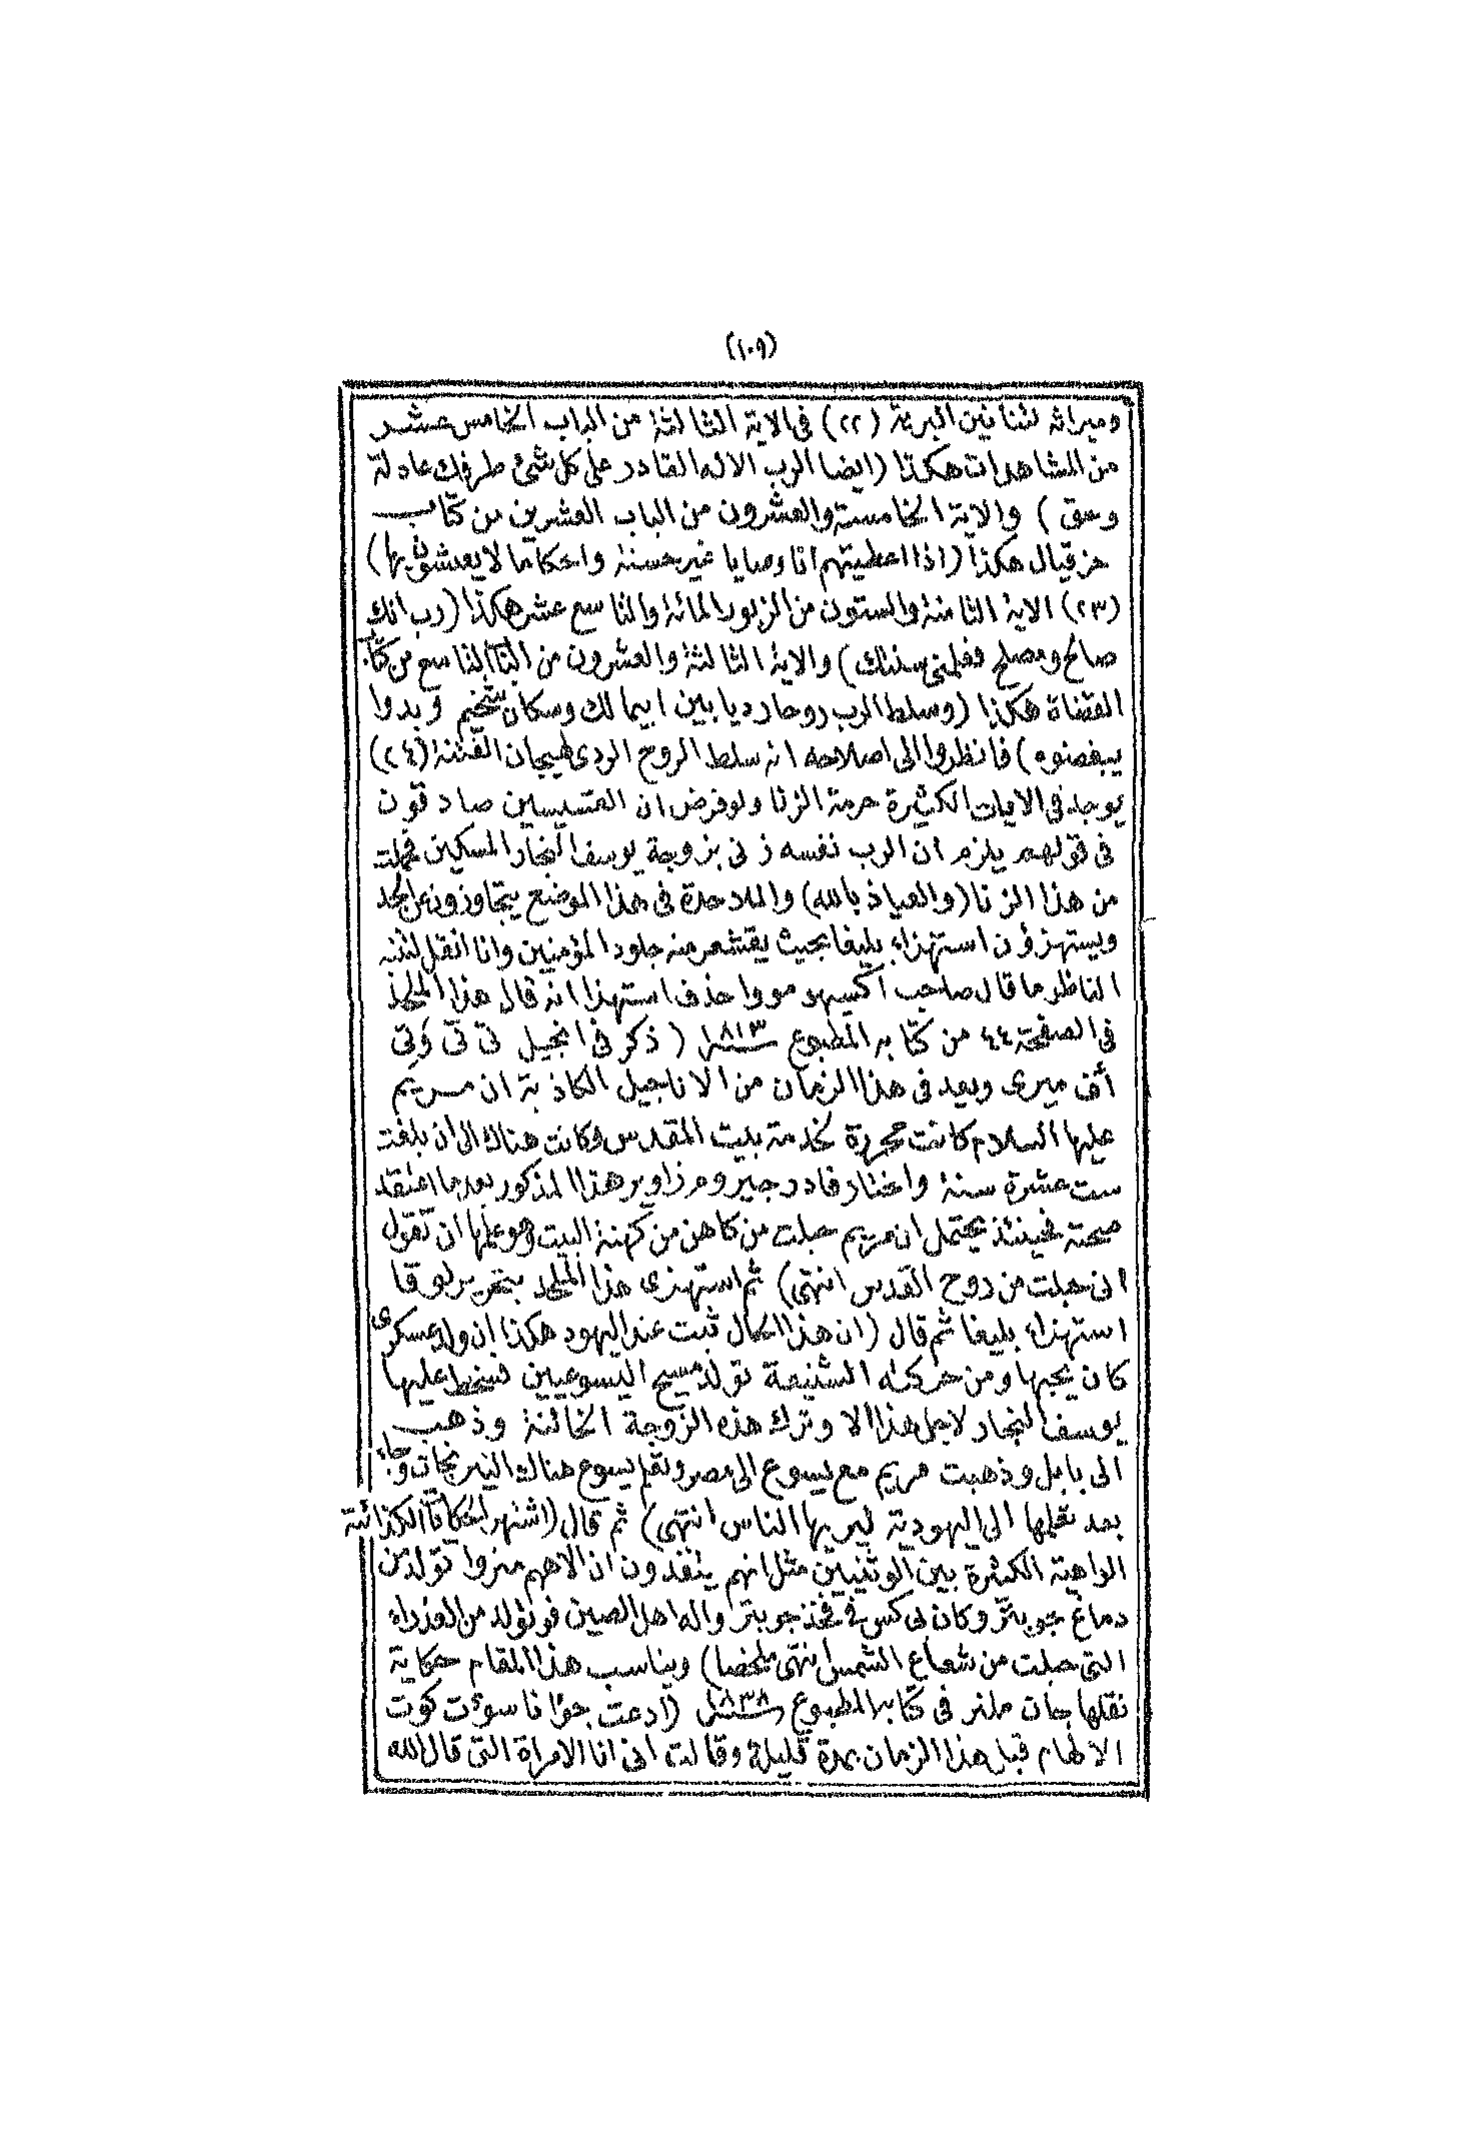 (١٠٩)
وميراثه لثنانين البرية (٢٢) فى الاية الثالثة من الباب الخامس عشر
من المشاهدات هكذا (ايضا الرب الاله القادر على كل شئ طرقك عادلة
وحق) والاية الخامسة والعشرون من الباب العشرين من كتاب
حزقيال هكذا (اذا اعطيتهم انا وصايا غير حسنة واحكاما لا يعيشون بها)
(٢٣) الاية الثامنة والستون من الزبور المائة والتاسع عشر هكذا (رب انك
صالح ومصلح فعلمنى سننك) والاية الثالثة والعشرون من الباب التاسع من كتاب
القضاة هكذا (وسلط الرب روحا رديا بين ابيمالك وسكان شخيم وبدوا
يبغضوه) فانظروا الى اصلاحه انه سلط الروح الردى لهيجان الفتنة (٢٤)
يوجد فى الايات الكثيرة حرمة الزنا ولو فرض ان القسيسين صادقون
فى قولهم يلزم ان الرب نفسه زنى بزوجة يوسف النجار المسكين فحملت
من هذا الزنا (والعياذ بالله) والملاحدة فى هذا الموضع يتجاوزون عن الحد
ويستهزؤن استهزاء بليغا بحيث يقشعر منه جلود المؤمنين وانا انقل لتنبه
الناظر ما قال صاحب اكسيهومو واحذف استهذا انه قال هذا الملحد
فى الصفحة ٤٤ من كتابه المطبوع سنة ١٨١٣ (ذكر فى انجيل تى تى وتى
أف ميرى ويعد فى هذا الزمان من الاناجيل الكاذبة ان مريم
عليها السلام كانت محررة لخدمة بيت المقدس وكانت هناك الى ان بلغت
ست عشرة سنة واختار فادر جيروم زاوير هذا المذكور بعد ما اعتقد
صحته فحينئذ يحتمل ان مريم حبلت من كاهن من كهنة البيت وهو علمها ان تقول
انى حبلت من روح القدس انتهى) ثم استهزى هذا الملحد بتحرير لوقا
استهزاء بليغا ثم قال (ان هذا الحال ثبت عند اليهود هكذا ان ولد عسكرى
كان يحبها ومن حركته الشنيعة تولد مسيح اليسوعيين فسخط عليها
يوسف النجار لاجل هذا الا وترك هذه الزوجة الخائنة وذهب
الى بابل وذهبت مريم مع يسوع الى مصر وتعلم يسوع هناك النيرنجات وجاء
بعد تعلمها الى اليهودية ليريها الناس انتهى) ثم قال (اشتهر الحكايات الكذائية
الواهية الكثيرة بين الوثنيين مثل انهم يعتقدون ان الاههم منروا تولد من
دماغ جوبيتر وكان بى كس فى فخذ جوبتر واله اهل الصين فو تولد من العذراء
التى حبلت من شعاع الشمس انتهى ملخصا) ويناسب هذا المقام حكاية
نقلها جان ملنر فى كتابه المطبوع سنة ١٨٣٨ (ادعت جوانا سوت كوت
الالهام قبل هذا الزمان بمدة قليلة وقالت انى انا الامراة التى قال الله